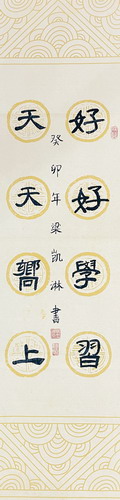 好好學習
天天嚮上
癸卯年梁凱淋書